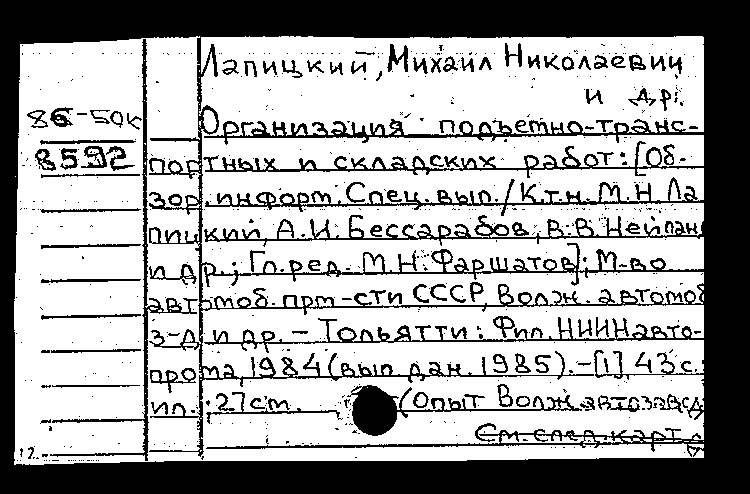 Лапицкий, Михаил Николаевич
и др.
86-50к
Организация подъетно-транс-
8592
портных и складских работ: [Об-
зор. информ. Спец. вып. / К.т.н. М.Н. Ла
пицкий, А.И. Бессарабов, В.В. Нейман
и др.; Гл. ред. М.Н. Фаршатов]; М-во
автомоб. прт-сти СССР, Волж. автомоб
з-д и др. - Тольятти: Фил. НИИНавто-
прома, 1984 (вып. дан. 1985). - [1], 43 с.:
ил.; 27 см. (Опыт Волж. автозавода
См. след. карт.
12.